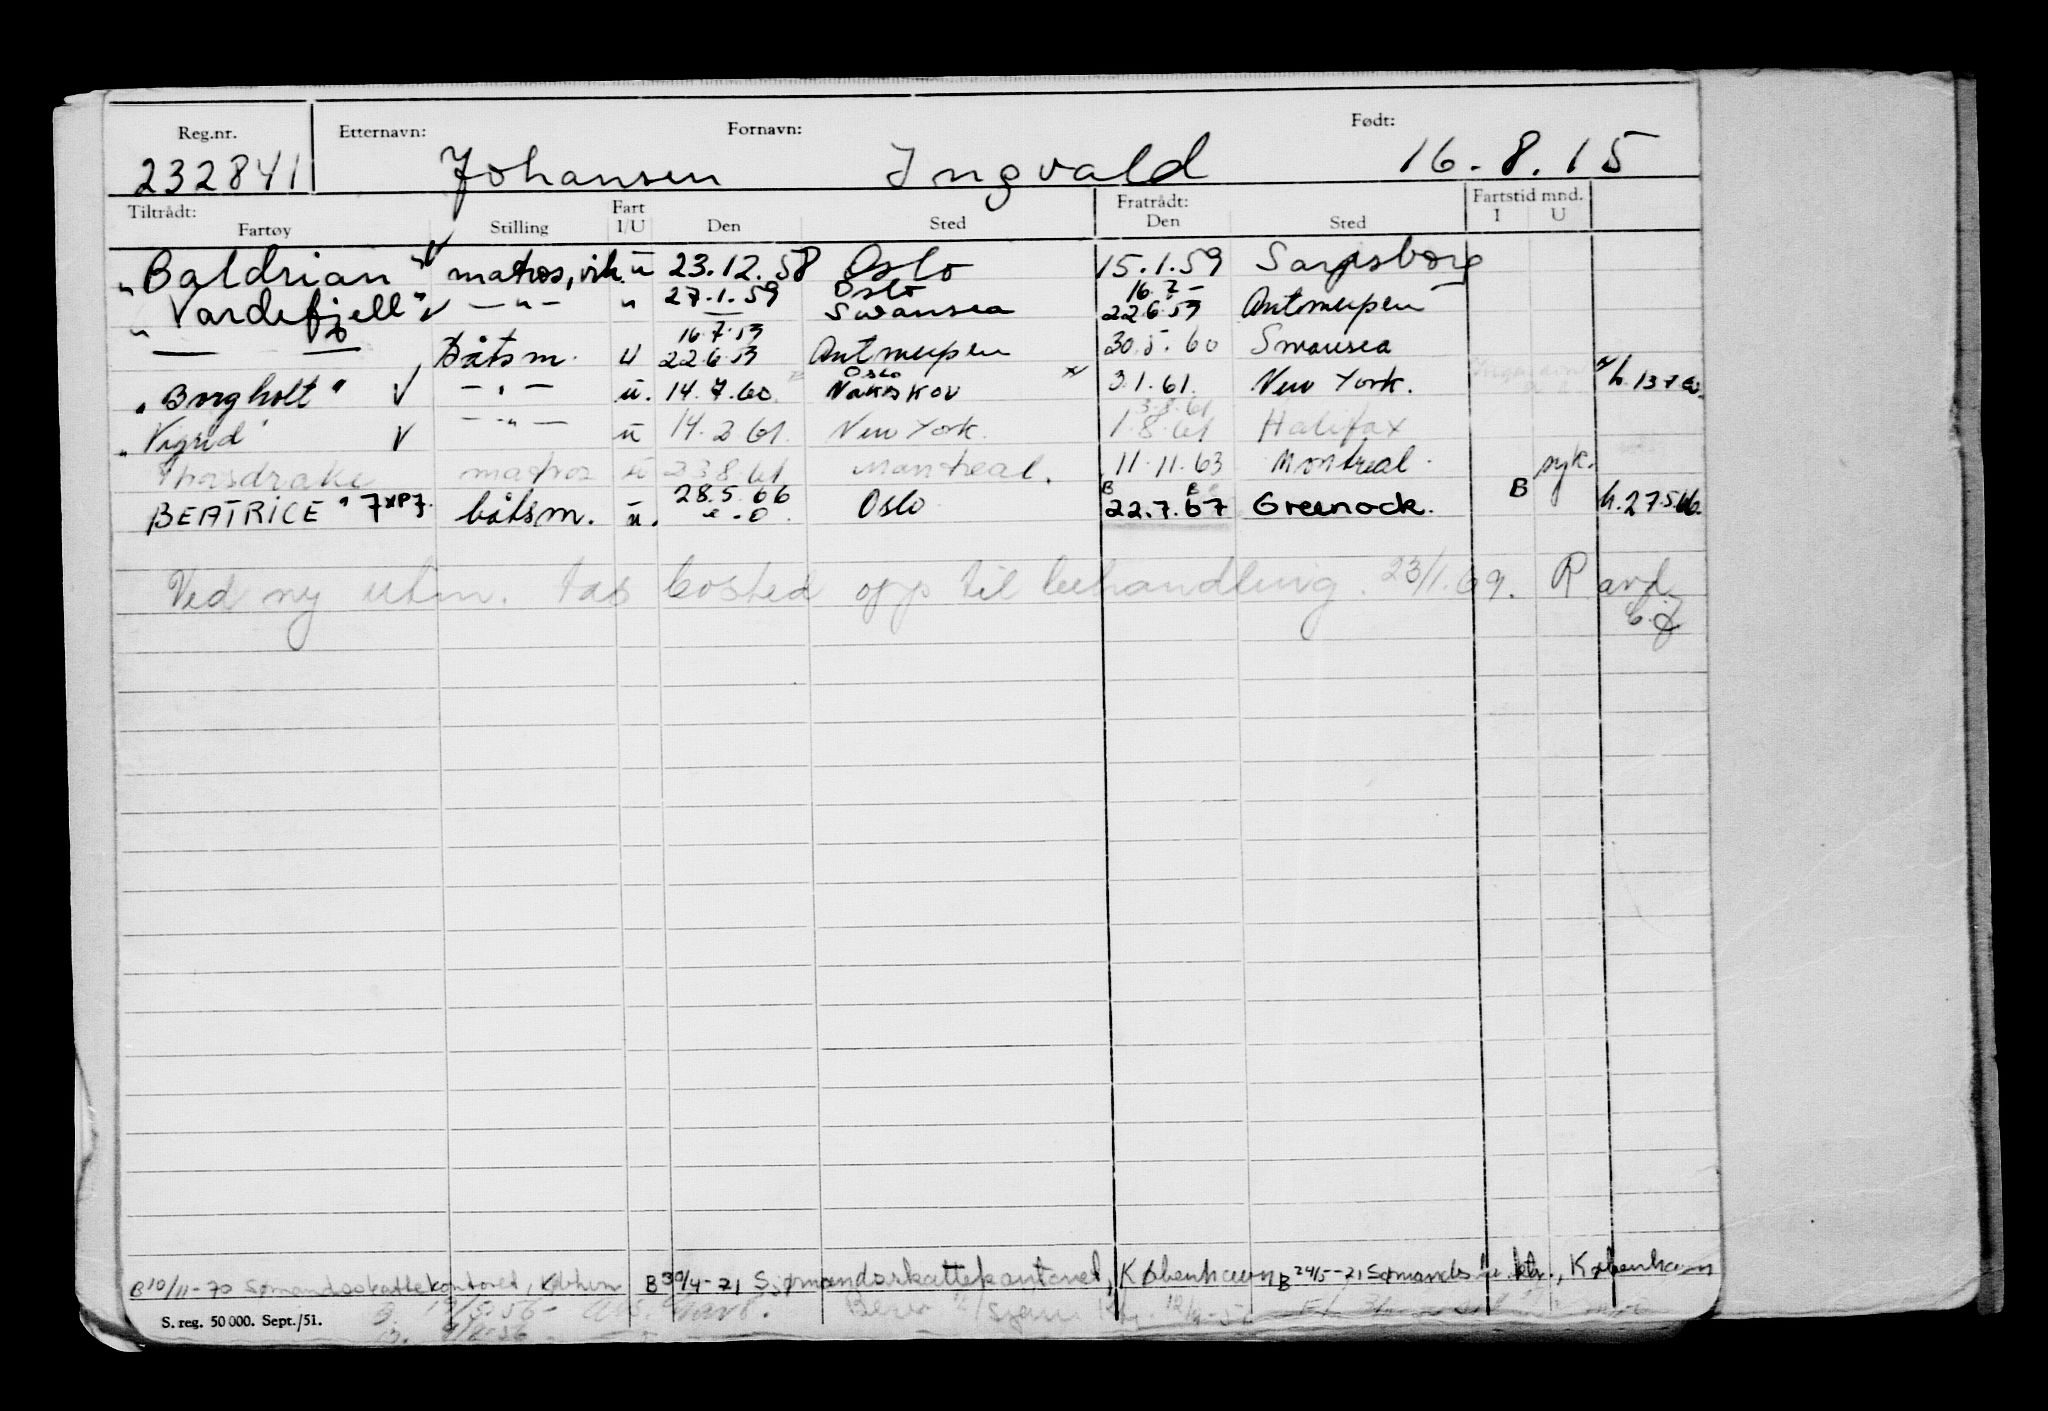 Reg.nr. Etternavn: Fornavn: Født:
232841 Johansen Ingvald 16.8.15
Tiltrådt: Fart Fratrådt: Fartstid mnd.
Fartøy Stilling I/U Den Sted Den Sted I U
"Baldrian" matros, vik. u 23.12.58 Oslo 15.1.59 Sarpsborg
27.1.59 Oslo 16.7-
"Vardefjell" — " — " Swansea 22.6.59 Antwerpen
16.7.59
— — Båtsm. U 22.6.59 Antwerpen 30.5.60 Swansea
Oslo
"Borgholt" — " — u. 14.7.60 Nakskov 3.1.61. New York. h. 13.7.60.
3.8.61
"Vigrid" — " — u 14.2.61. New York. 1.8.61 Halifax
Thorsdrake matros u 23.8.61 Montreal. 11.11.63 Montreal. syk.
28.5.66
BEATRICE" båtsm. u. Oslo 22.7.67 Greenock. B h.27.5.66.
Ved ny utm. tas bosted opp til behandling. 23/1.69. R avd.
B 10/11-70 Sømandsskattekontoret, Kbhvn B 30/4-71 Sømandsskattekontoret, København B 24/5-71 Sømands København
S. reg. 50 000. Sept./51.